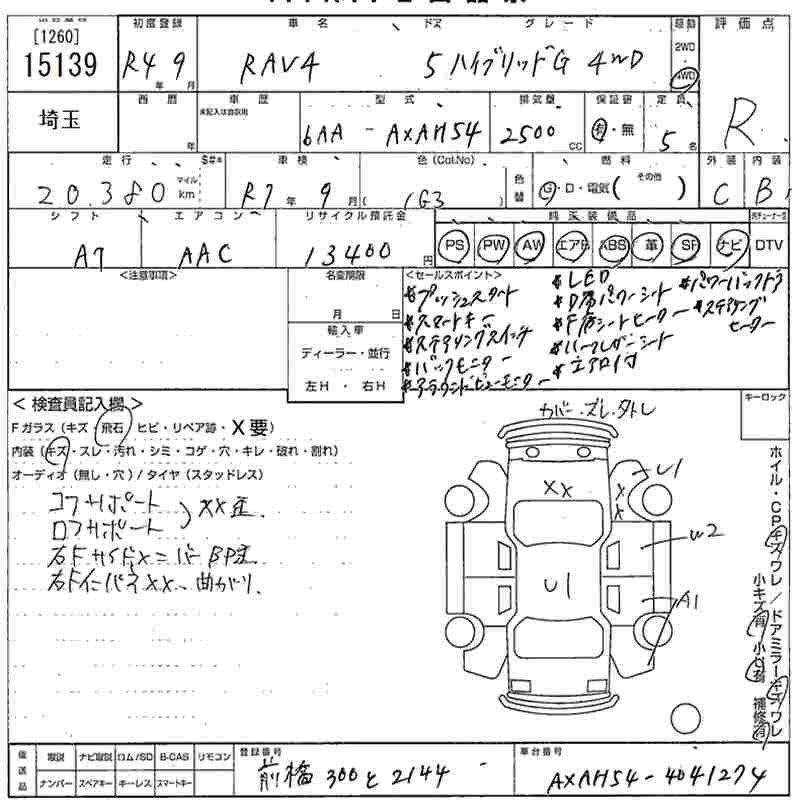 [1260]
15139
初度登録
R4 年 9 月
車名
RAV4
ドア
5
グレード
ハイブリッドG 4WD
駆動
2WD
4WD
評価点
R
埼玉
西暦
年
車歴
未記入は自家用
型式
6AA - AXAH54
排気量
2500 CC
保証書
有・無
定員
5 名
走行
20,380
マイル
km
$#*
車検
R7 年 9 月
色(Col.No)
( 1G3 )
色替
燃料
G・D・電気( その他 )
外装
C
内装
B
シフト
A7
エアコン
AAC
リサイクル預託金
13400 円
純正装備品
PS PW AW エアB ABS 革 SR ナビ DTV
<注意事項>
名変期限
月 日
輸入車
ディーラー・並行
左H・右H
<セールスポイント>
*プッシュスタート
*スマートキー
*ステアリングスイッチ
*バックモニター
*アラウンドビューモニター
*LED
*D席パワーシート
*F席シートヒーター
*ハーフレザーシート
*エアロ付
*パワーバックドア
*ステアリング
ヒーター
<検査員記入欄>
Fガラス(キズ・飛石 ヒビ・リペア跡・X要)
内装(キズ・スレ・汚れ・シミ・コゲ・穴・キレ・破れ・割れ)
オーディオ(無し・穴)/タイヤ(スタッドレス)
コアサポート
ロアサポート
XX歪.
右FサイドメンバーBP歪
右FインパネXX・曲がり.
カバー・ズレ・タトレ
キーロック
XX
X
X
U1
W2
U1
A1
ホイル・CPキズワレ/ドアミラーキズワレ
小キズ有 小凹有 補修有
後送品
取説 ナビ取説 ロム/SD B-CAS リモコン
ナンバー スペアキー キーレス スマートキー
登録番号
前橋 300 と 2144
車台番号
AXAH54-4041274